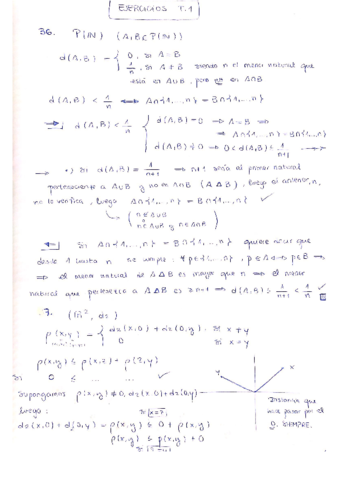 EJERCICIOS T.1
36. P(N) (A,B⊂P(N))
d(A,B) = { 0, si A=B
1/n, si A≠B siendo n el menor natural que
está en A∪B, pero no en A∩B
d(A,B) < 1/n ⟺ A∩{1,...,n} = B∩{1,...,n}
⟹ d(A,B) < 1/n { d(A,B)=0 ⟹ A=B ⟹
⟹ A∩{1,...,n} = B∩{1,...,n}
d(A,B)≠0 ⟹ 0<d(A,B)≤ 1/(n+1)
Si d(A,B) = 1/(n+1) ⟹ n+1 sería el primer natural
perteneciente a A∪B y no en A∩B (A△B), luego el anterior, n,
no lo verifica, luego A∩{1,...,n} = B∩{1,...,n} ✓
⟸ Si A∩{1,...,n} = B∩{1,...,n} quiere decir que
desde 1 hasta n se cumple: ∀p∈{1,...,n}, p∈A ⟺ p∈B ⟹
⟹ el menor natural de A△B es mayor que n ⟹ el menor
natural que pertenece a A△B es ≥n+1 ⟹ d(A,B) ≤ 1/(n+1) < 1/n ✓
7. (ℝ², d₂)
ρ(x,y) = { d₂(x,0) + d₂(0,y) si x≠y
0 si x=y
ρ(x,y) ≤ ρ(x,z) + ρ(z,y)
Si 0 ≤ ... ... ✓
Supongamos ρ(x,y)≠0, d₂(x,0)+d₂(0,y)
luego: si x=z,
d₂(x,0) + d₂(0,y) = ρ(x,y) ≤ 0 + ρ(x,y)
ρ(x,y) ≤ ρ(x,y) + 0
y
x
Distancia que
va a pasar por el
0. SIEMPRE.